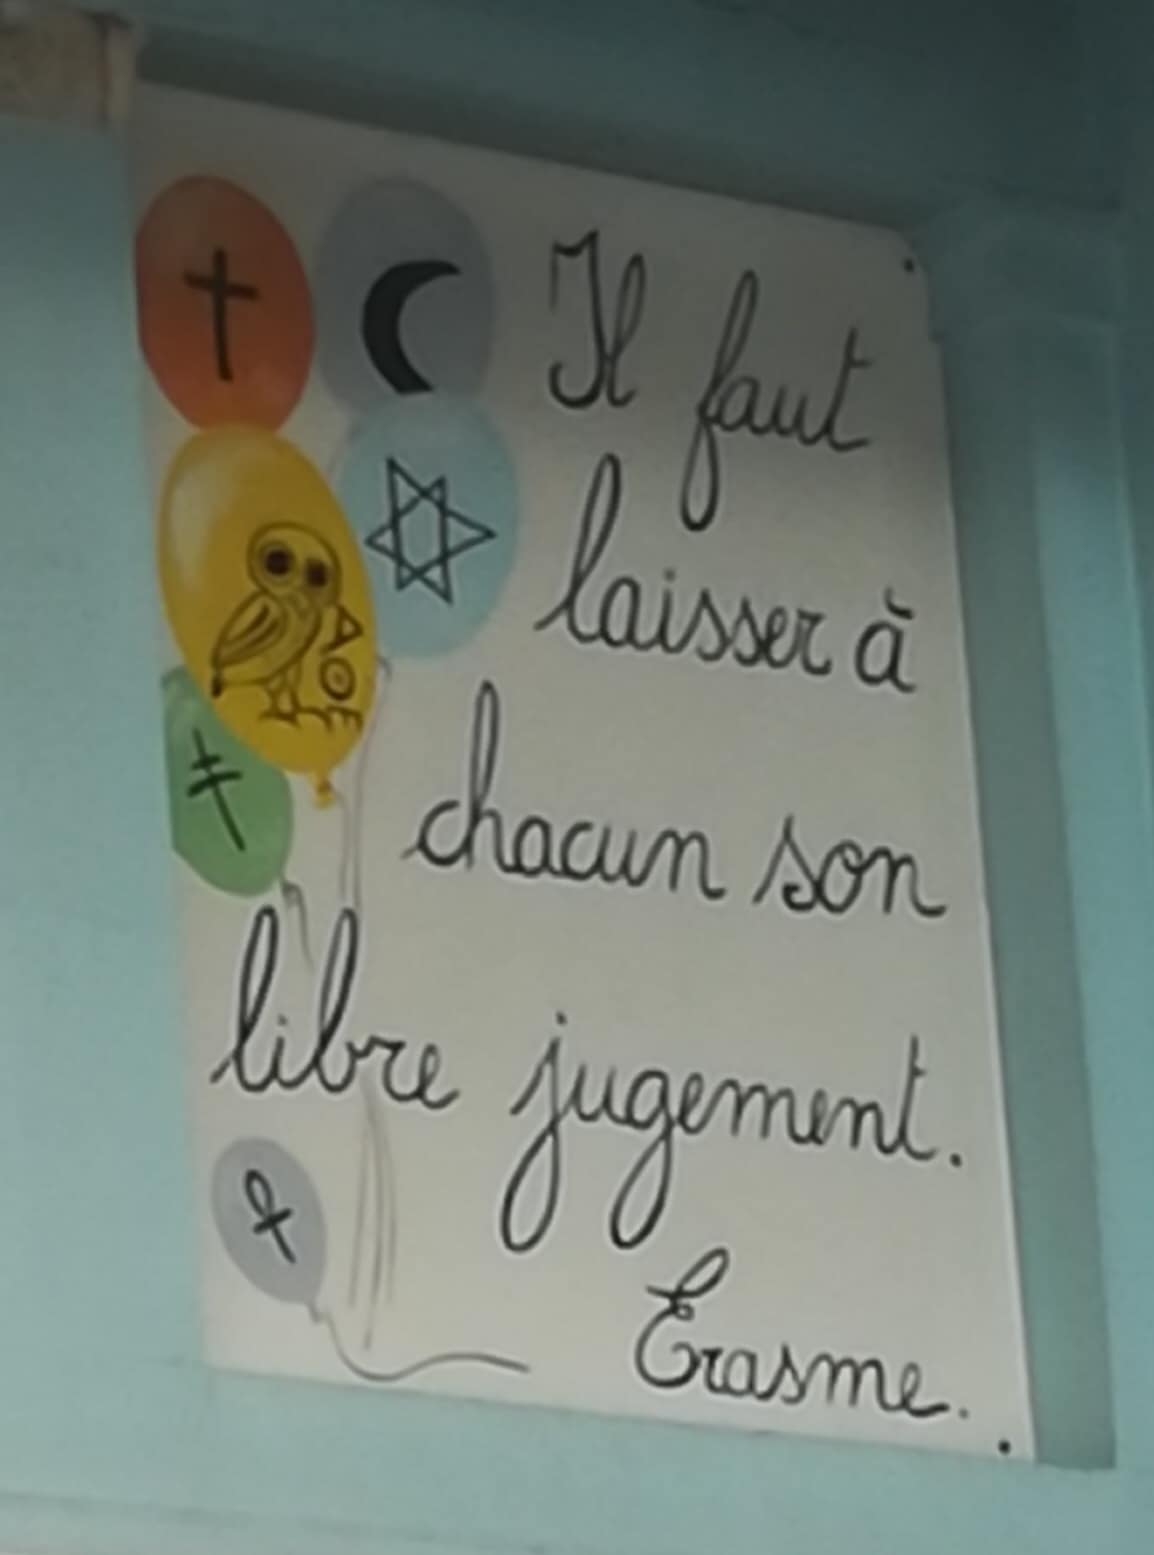 Il faut
laisser à
chacun son
libre jugement.
Erasme.
ΑΘΕ